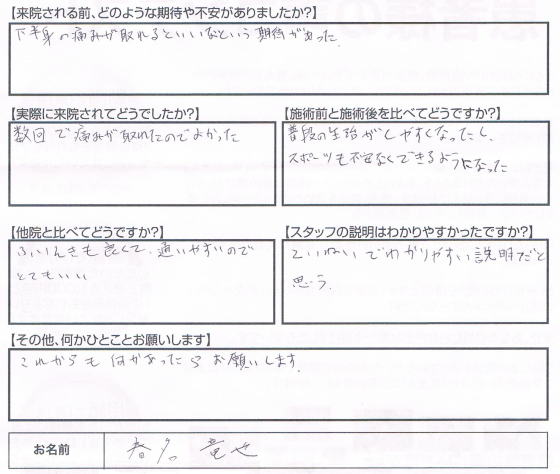 【来院される前、どのような期待や不安がありましたか?】
下半身の痛みが取れるといいなという期待があった
【実際に来院されてどうでしたか?】
数回で痛みが取れたのでよかった
【施術前と施術後を比べてどうですか?】
普段の生活がしやすくなったし、
スポーツも不安なくできるようになった
【他院と比べてどうですか?】
ふいんきも良くて、通いやすいので
とてもいい
【スタッフの説明はわかりやすかったですか?】
ていねいでわかりやすい説明だと
思う。
【その他、何かひとことお願いします】
これからも何かあったらお願いします。
お名前 春名 竜也